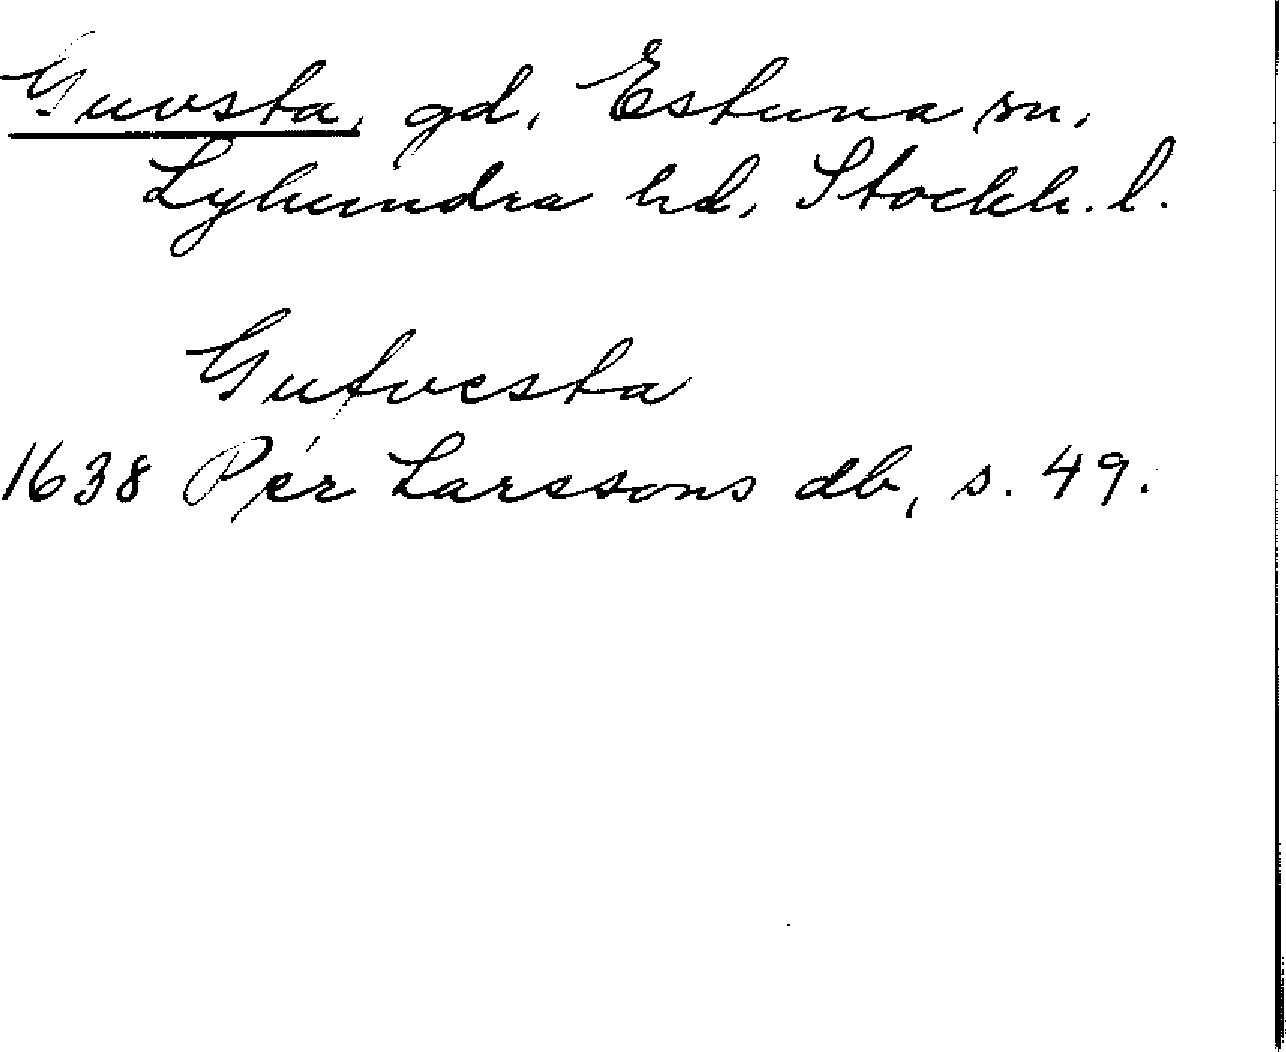 Guvsta, gd, Estuna sn,
Lyhundra hd, Stockh. l.
Gutvesta
1638 Pér Larssons db, s. 49.